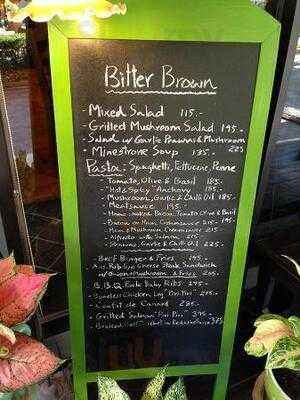 Bitter Brown
- Mixed Salad 115.-
- Grilled Mushroom Salad 195.-
- Salad w/ Garlic Prawns & Mushroom 225
- Minestrone Soup 135.-
Pasta: Spaghetti, Fettucine, Penne
- Tomato, Olive & Basil 185.-
- "Hot & Spicy" Anchovy 185.-
- Mushroom, Garlic & Chilli Oil 185
- Meat sauce 195.-
- Home smoked Bacon, Tomato, Olive & Basil
- Bacon or Ham, Creamsauce 215.- 195
- Ham & Mushroom Creamsauce
- Alfredo with Salmon 215.-
- Prawns, Garlic & Chilli Oil 225.-
- Beef Burger & Fries 195.-
- Aus. Rib Eye Cheese Steak Sandwich
w/ Onions Mushroom & Fries 205.-
- B.B.Q. Pork Baby Ribs 245.-
- Boneless Chicken Leg "Piri Piri" 245.-
- Confit de Canard 285.-
- Grilled Salmon "Piri Piri" 395.-
- Braised Beef in Red wine Sauce 375